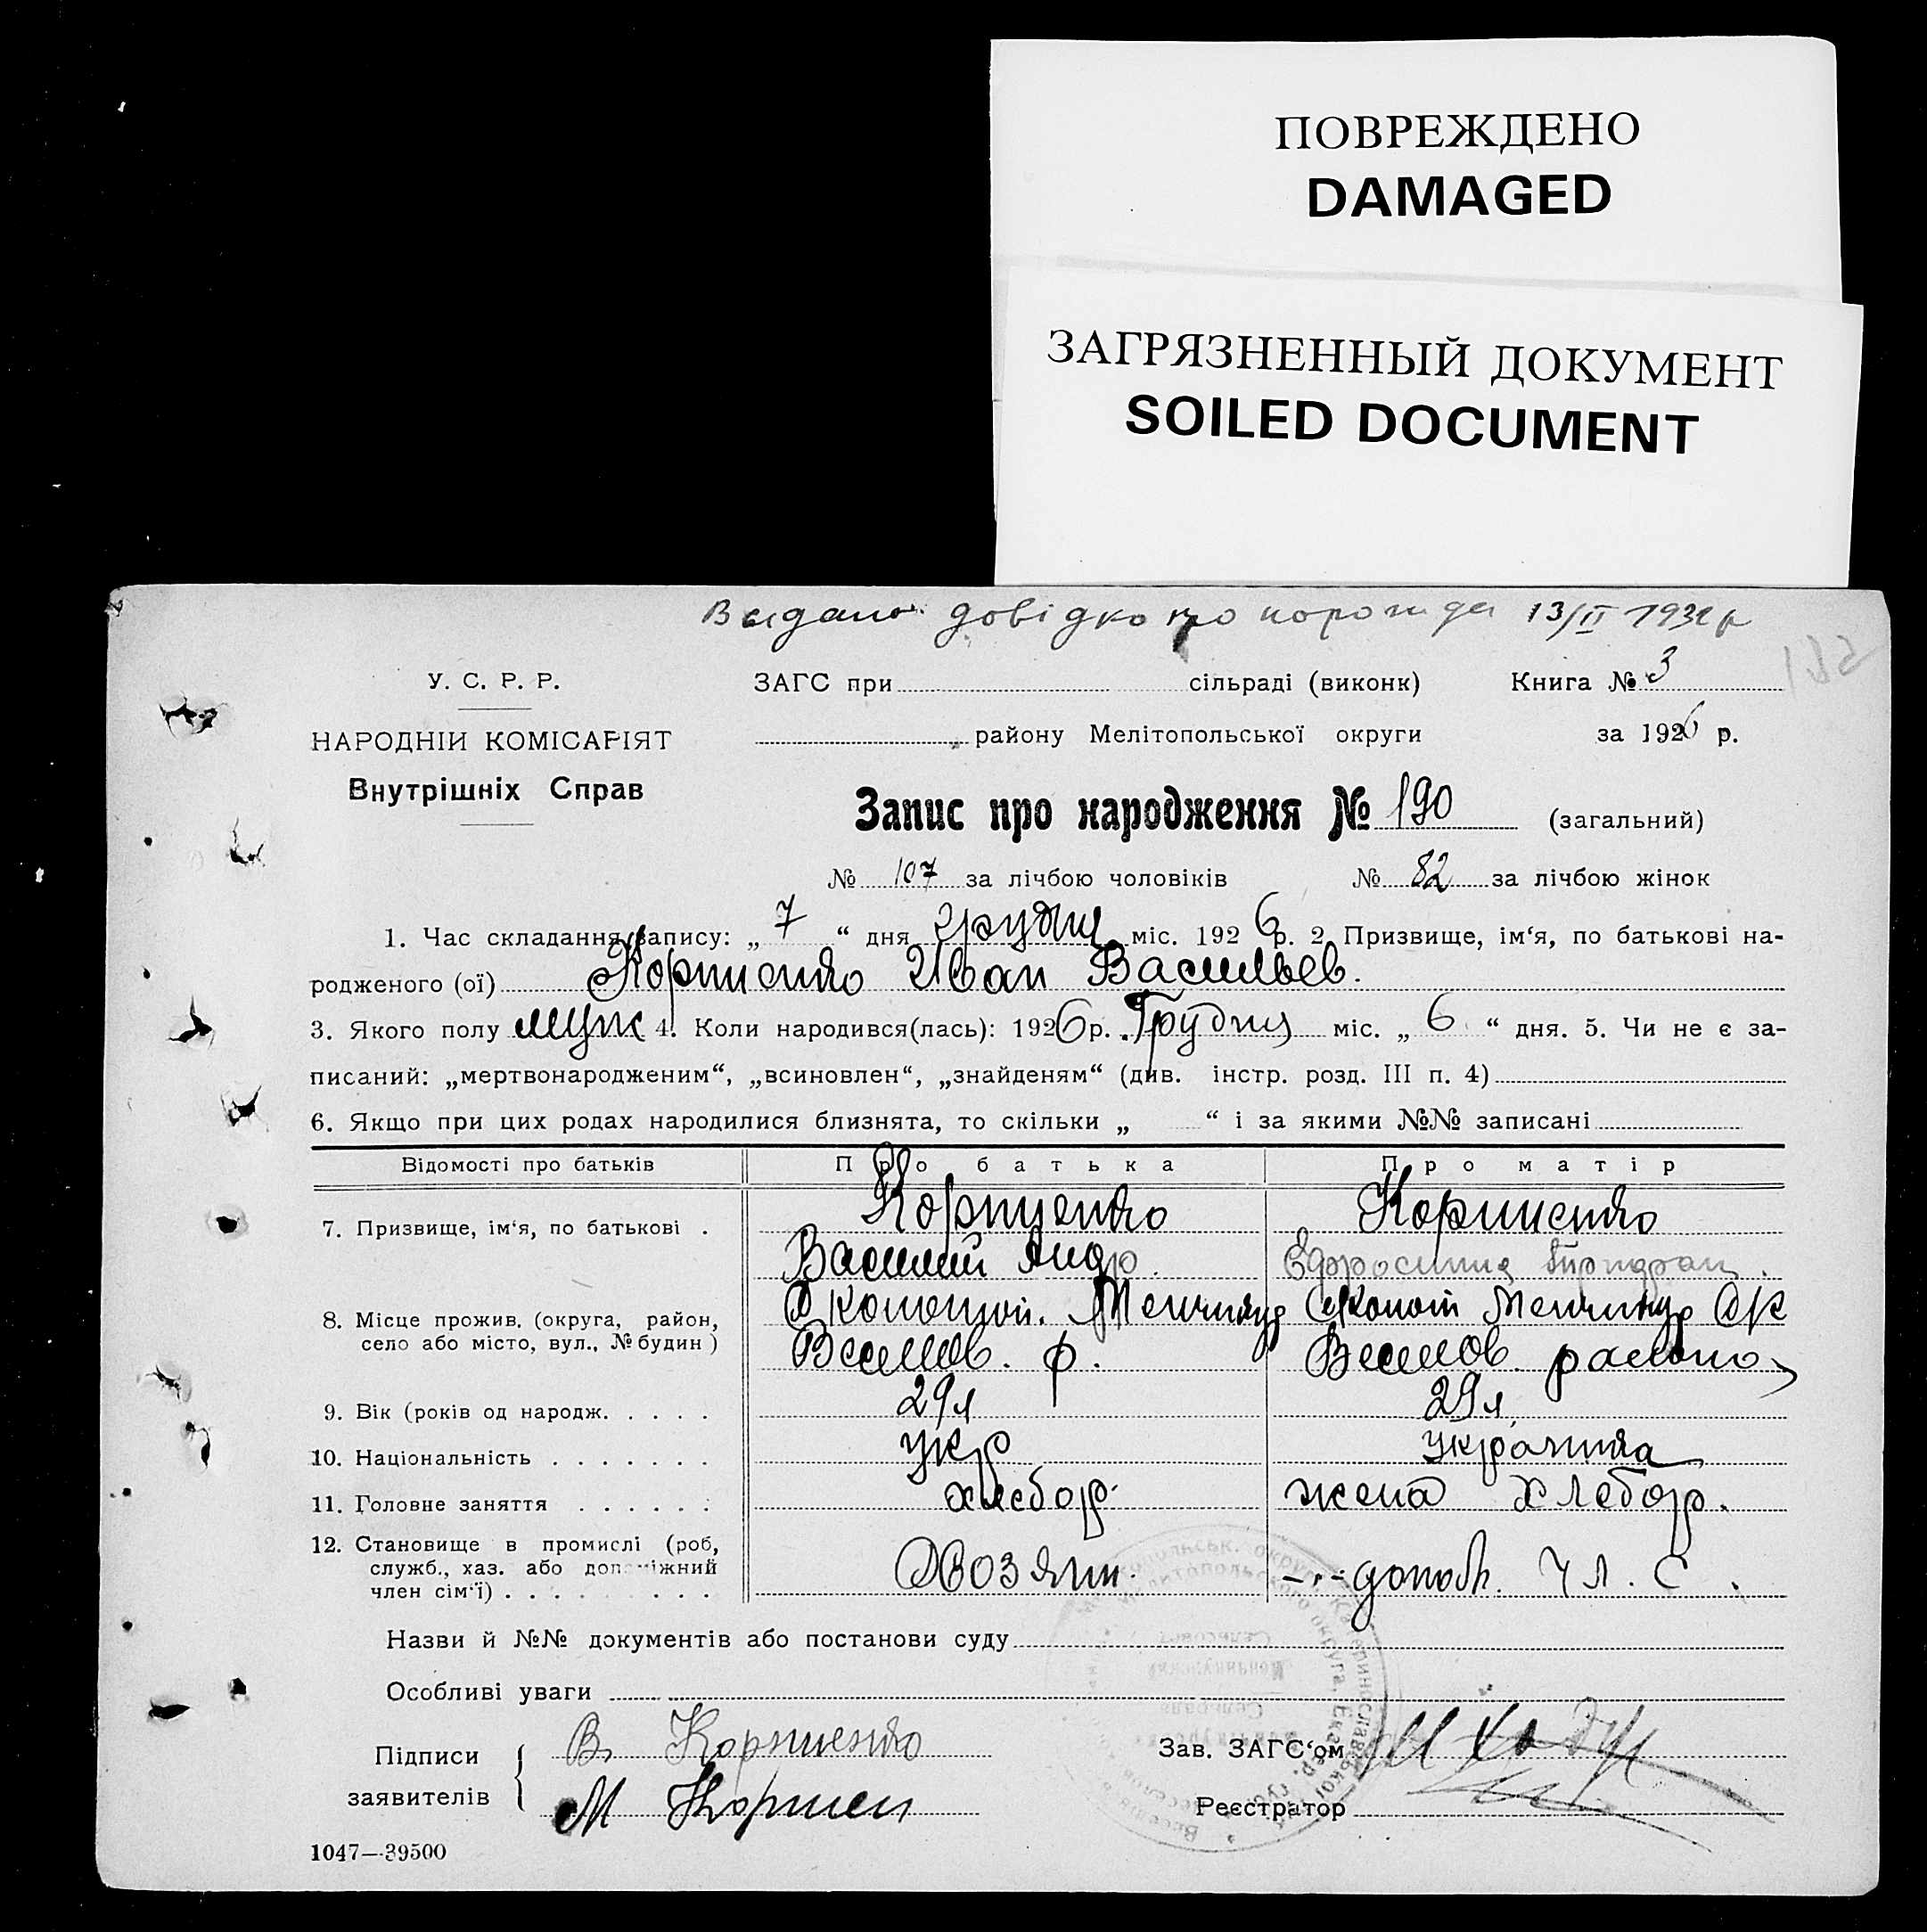 ПОВРЕЖДЕНО
DAMAGED
ЗАГРЯЗНЕННЫЙ ДОКУМЕНТ
SOILED DOCUMENT
Видано довідко про 13/II 193
У. С. Р. Р.
ЗАГС при сільраді (виконк) Книга № 3
НАРОДНІЙ КОМІСАРІЯТ
району Мелітопольської округи за 1926 р.
Внутрішніх Справ
Запис про народження № 190 (загальний)
№ 107 за лічбою чоловіків № 82 за лічбою жінок
1. Час складання запису: „ 7 “ дня грудня міс. 1926 р. 2. Призвище, ім‘я, по батькові на-
родженого (ої) Корниенко Иван Васильев.
3. Якого полу муж 4. Коли народився(лась): 1926 р. Грудня міс. „ 6 “ дня. 5. Чи не є за-
писаний: „мертвонародженим“, „всиновлен“, „знайденям“ (див. інстр. розд. III п. 4)
6. Якщо при цих родах народилися близнята, то скільки „ “ і за якими №№ записані
Відомості про батьків Про батька Про матір
7. Призвище, ім‘я, по батькові . Корниенко Корниенко
Василий Андр. Ефросиния
8. Місце прожив. (округа, район,
село або місто, вул., № будин)
Веселов. р. Веселов. району
9. Вік (років од народж. . . . . 29 л 29 л.
10. Національність . . . . . . . укр українка
11. Головне заняття . . . . . . хлебор. жена хлебор.
12. Становище в промислі (роб,
служб., хаз. або допоміжний
член сім‘ї) . . . . . . . . . Хозяин. допом. чл. с.
Назви й №№ документів або постанови суду
Особливі уваги
Підписи
заявителів
В. Корниенко
М Корниен
Зав. ЗАГС‘ом
Реєстратор
1047—39500